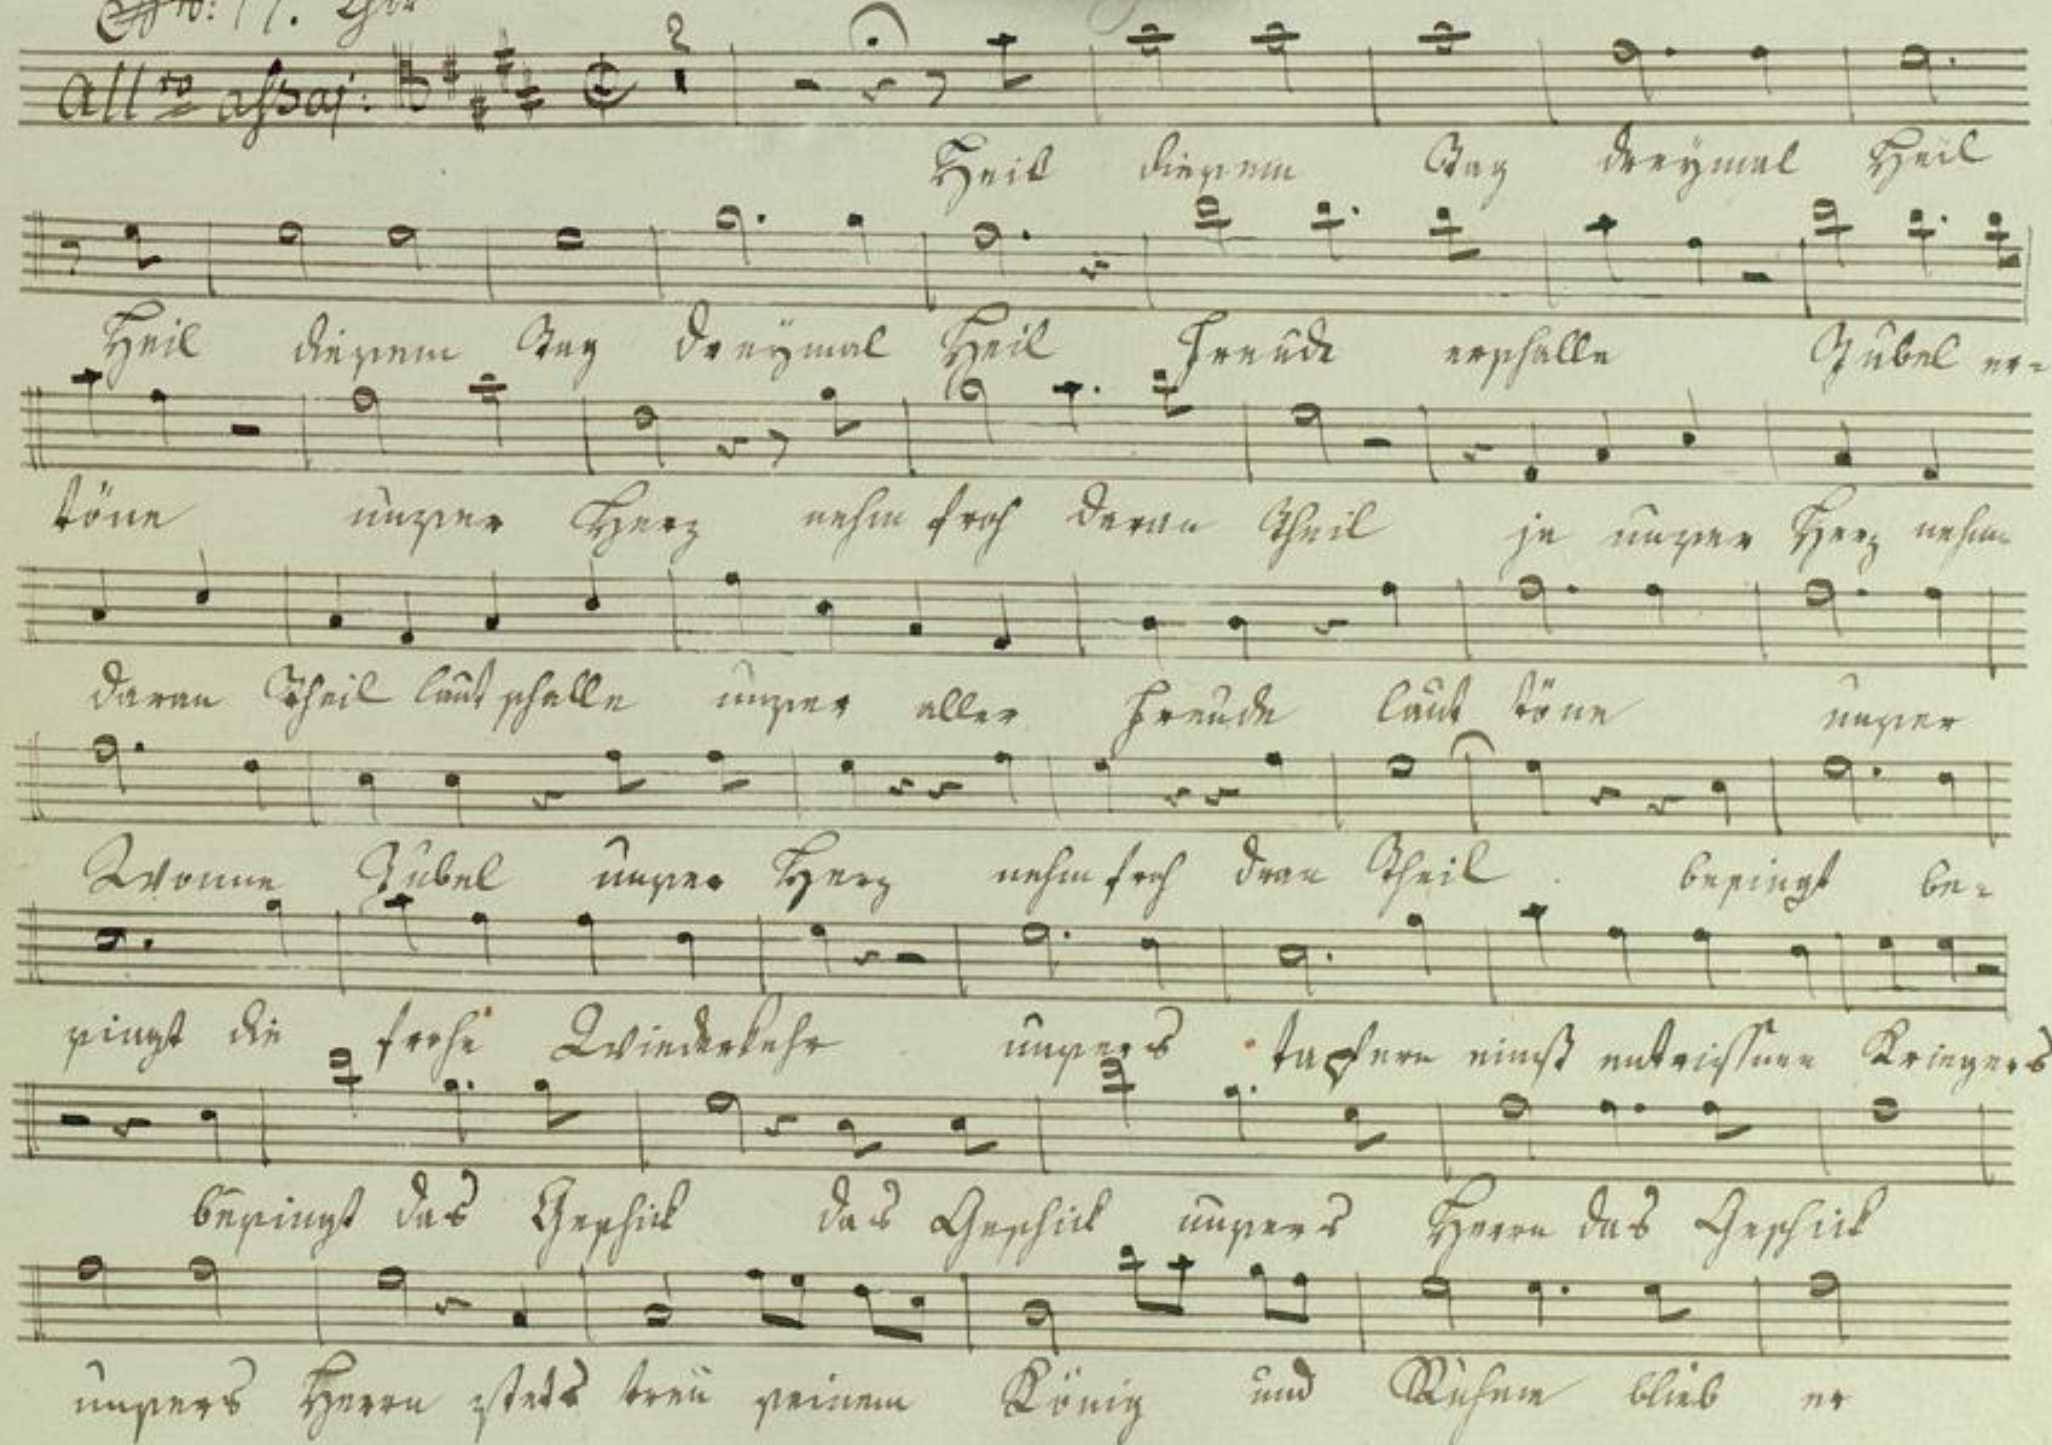 No: 11. Chor
All:ro assaj: 2
Heil diesem Tag dreymal Heil
Heil diesem Tag dreymal Heil Freude erschalle Jubel er=
töne unser Herz nehm froh daran Theil ja unser Herz nehm
daran Theil laut schalle unser aller Freude laut töne unser
Wonne Jubel unser Herz nehm froh dran Theil besingt be=
singt die frohe Wiederkehr unsers tapfern einst entrissnen Kriegers
besingt das Geschick das Geschick unsers Herrn das Geschick
unsers Herrn stets treu seinem König und Ruhme blieb er